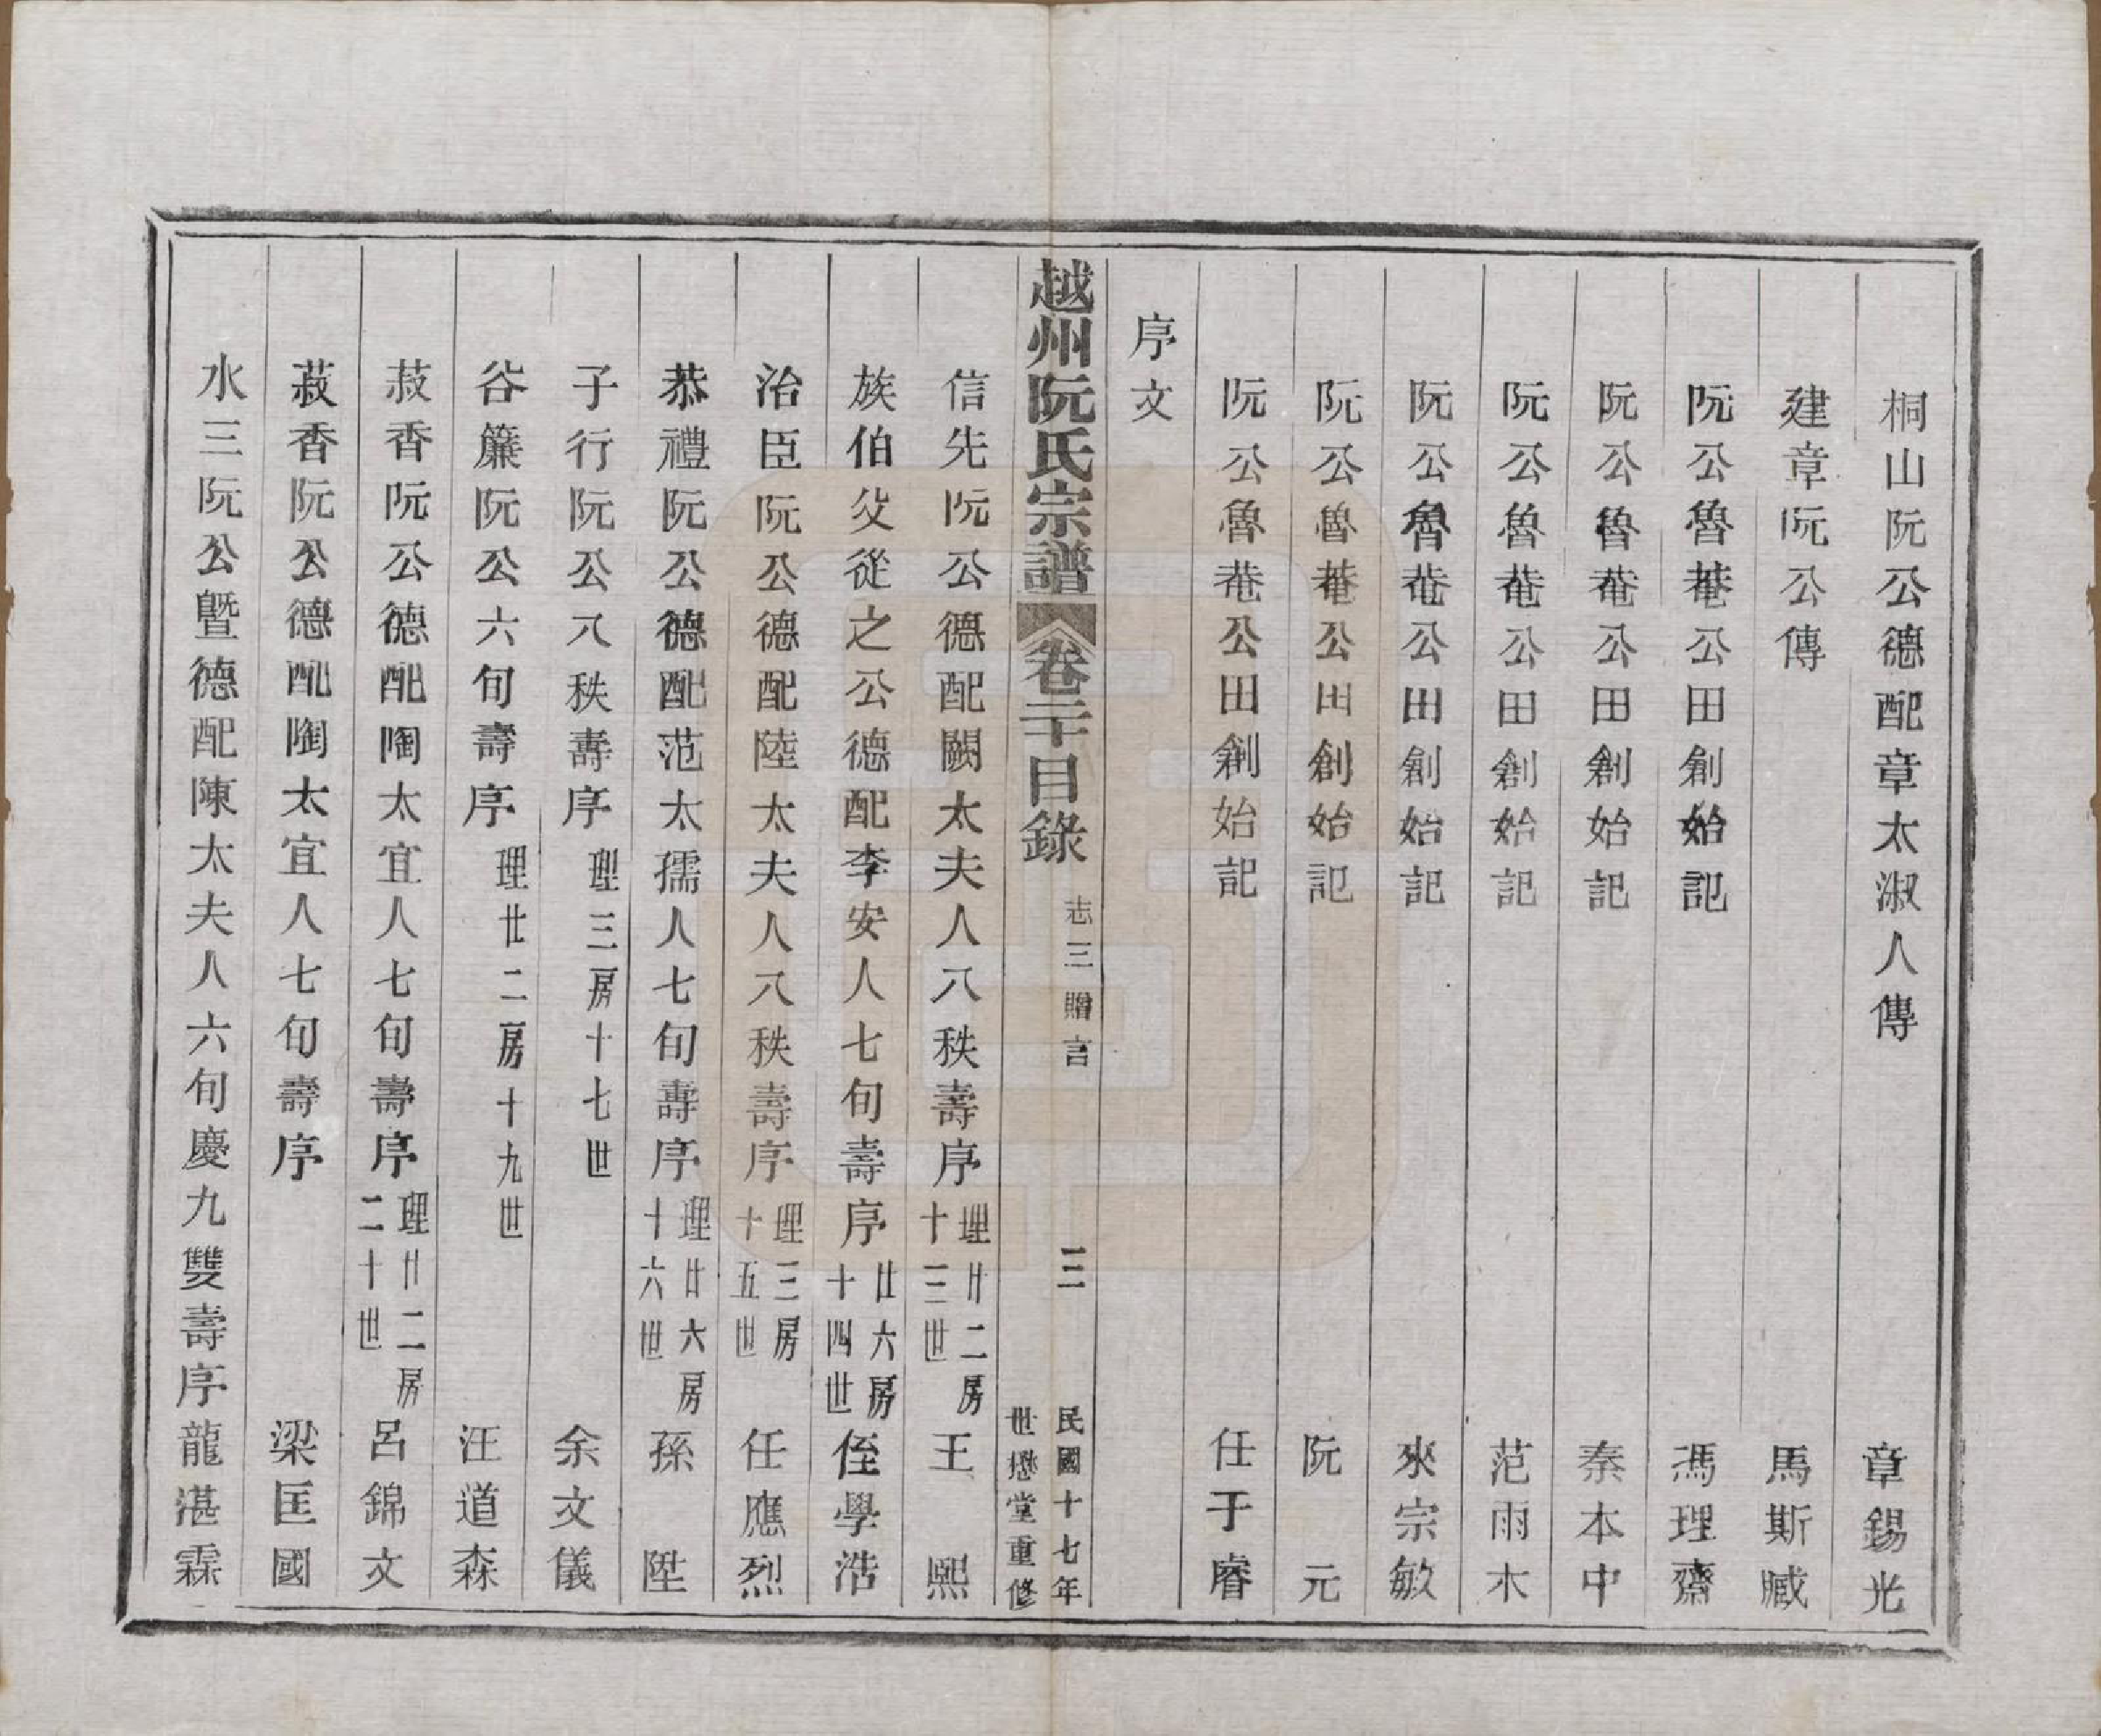 桐山阮公德配章太淑人傳 章錫光
建章阮公傳 馬斯臧
阮公魯菴公田創始記 馮理齋
阮公魯菴公田創始記 秦本中
阮公魯菴公田創始記 范雨木
阮公魯菴公田創始記 來宗敏
阮公魯菴公田創始記 阮元
阮公魯菴公田創始記 任于睿
序文
越州阮氏宗譜 卷二十目錄 志三贈言 三 民國十七年 世懋堂重修
信先阮公德配闕太夫人八秩壽序 理廿二房十三世 王熙
族伯父從之公德配李安人七旬壽序 廿六房十四世 侄學浩
治臣阮公德配陸太夫人八秩壽序 理三房十五世 任應烈
恭禮阮公德配范太孺人七旬壽序 理廿六房十六世 孫陞
子行阮公八秩壽序 理三房十七世 余文儀
谷簾阮公六旬壽序 理廿二房十九世 汪道森
菽香阮公德配陶太宜人七旬壽序 理廿二房二十世 呂錦文
菽香阮公德配陶太宜人七旬壽序 梁匡國
水三阮公暨德配陳太夫人六旬慶九雙壽序 龍湛霖